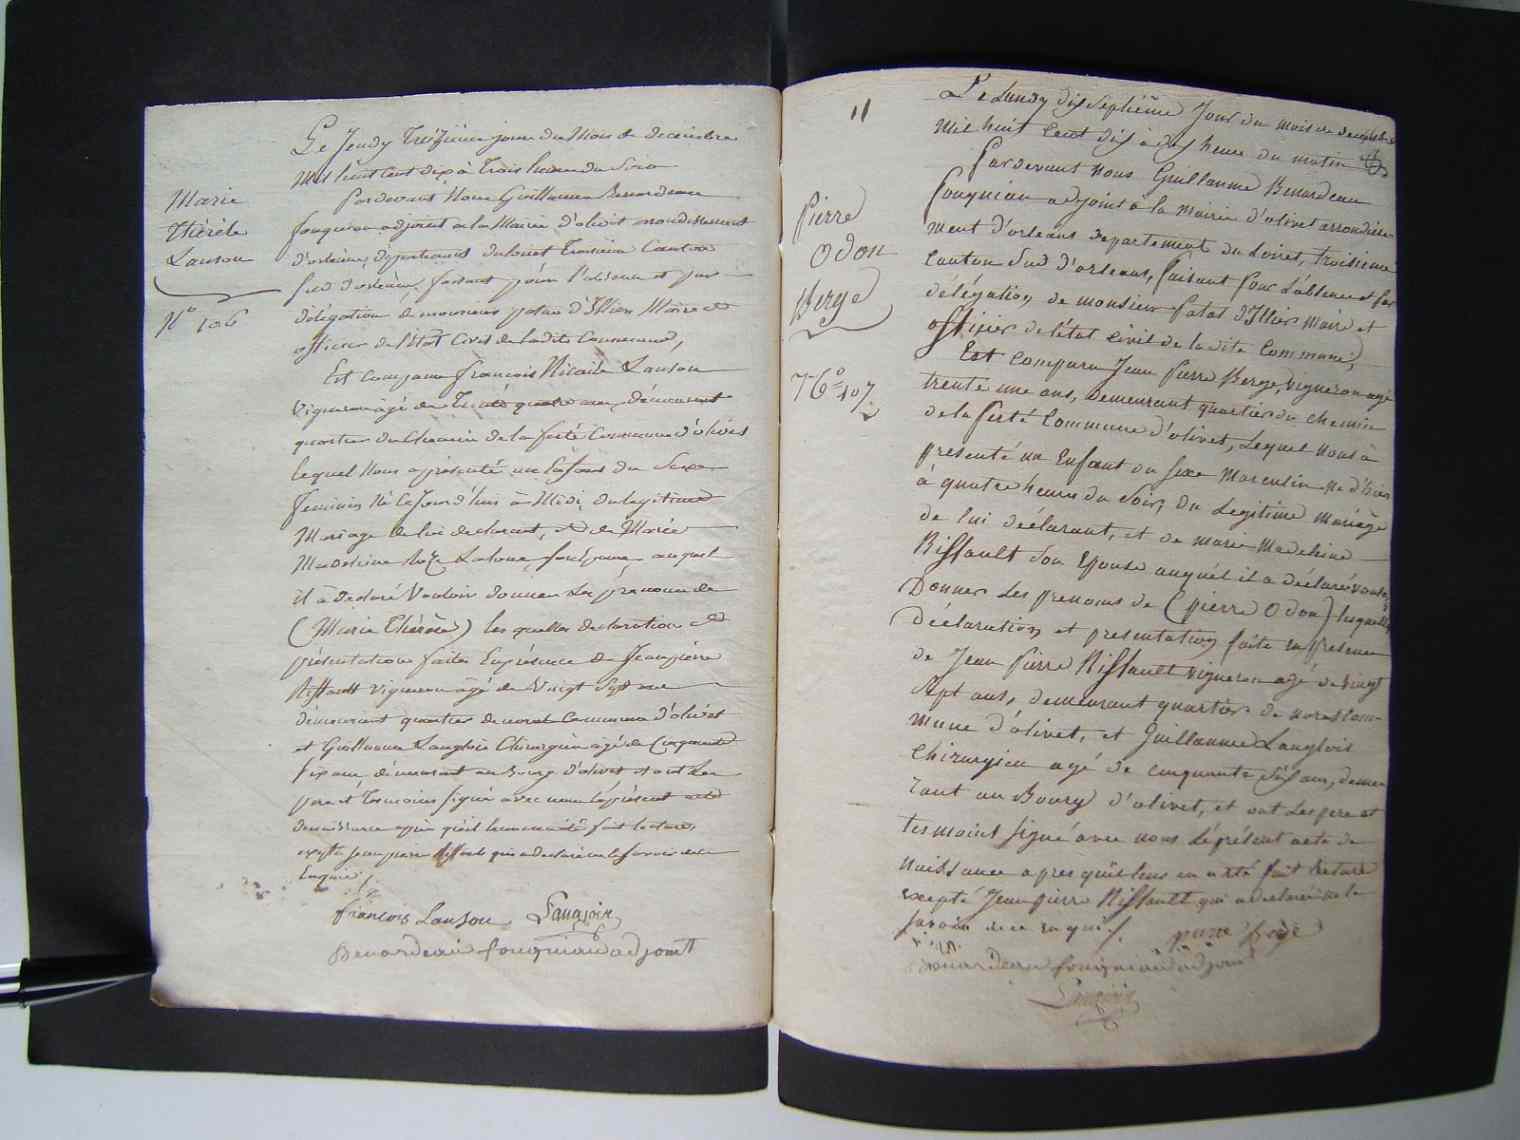 Marie
Thérèse
Lanson
N.o 106
Ce Jeudy Treizieme jour du Mois de decembre
Mil huit Cent dix à Trois heures du Soir
Pardevant Nous Guillaume Benardeau
fougniau adjoint a la Mairie d'olivet arrondissement
d'orleans, departement du loiret Troisieme Canton
Sud d'orléans, faisant pour l'absence et par
délégation de monsieur patas d'Illiers Maire et
officier de l'Etat Civil de la dite Commune,
Est Comparu françois Nicaise Lanson
Vigneron âgé de Trente quatre ans, démeurant
quartier du Chemin de la ferté Commune d'olivet
lequel Nous a présenté un Enfant du Sexe
feminin Né Cejourd'hui à Midi du legitime
Mariage de lui declarant, et de Marie
Madeleine Son Epouse, auquel
il a declaré Vouloir donner Les prénoms de
(Marie Thérèse) les quelles declaration et
présentation faites En présence de Jean pierre
Riffault Vigneron âgé de Vingt Sept ans
démeurant quartier de Commune d'olivet
et Guillaume Langlois Chirurgien âgé de Cinquante
Six ans, démeurant au Bourg d'olivet et ont Les
pere et Tesmoins Signé avec nous le présent acte
de naissance après qu'il leur en a été fait lecture,
excepté Jean pierre Riffault qui a declaré ne le savoir de ce
Enquis./.
françois Lanson Langlois
Benardeau fougniau adjoint
11
Pierre
Odon
Berge
No 107
Le Lundy dix Septième Jour du mois de decembre
Mil huit Cent dix à dix heure du matin
Pardevant nous Guillaume Benardeau
Fougniau adjoint à la mairie d'olivet arrondisse-
ment d'orleans departement du Loiret, troisieme
Canton Sud d'orleans, faisant pour l'absence et par
délégation de monsieur Patas d'Illiers maire et
officier de l'état Civil de la dite Commune,
Est Comparu Jean Pierre Berge, vigneron agé
trente une ans, demeurant quartier du chemin
de la ferté Commune d'olivet, Lequel nous à
presenté un Enfant du Sexe Masculin né d'hier
à quatre heures du Soir, du Legitime Mariage
de lui déclarant, et de marie Madeleine
Riffault Son Epouse auquel il a déclaré vouloir
Donner Les prenoms de (pierre Odon) lesquelles
Déclaration et presentation faite en presence
de Jean Pierre Riffault vigneron agé de vingt
Sept ans, demeurant quartier de Com-
mune d'olivet, et Guillaume Langlois
Chirurgien agé de cinquante Six ans, demeu
rant au Bourg d'olivet, et ont Les pere et
tesmoins signé avec nous le présent acte de
naissance apres qu'il leur en a eté fait lecture
excepté Jean pierre Riffault qui a declaré ne le
savoir de ce enquis./. pierre berge
Benardeau fougniau adjoint
Langlois